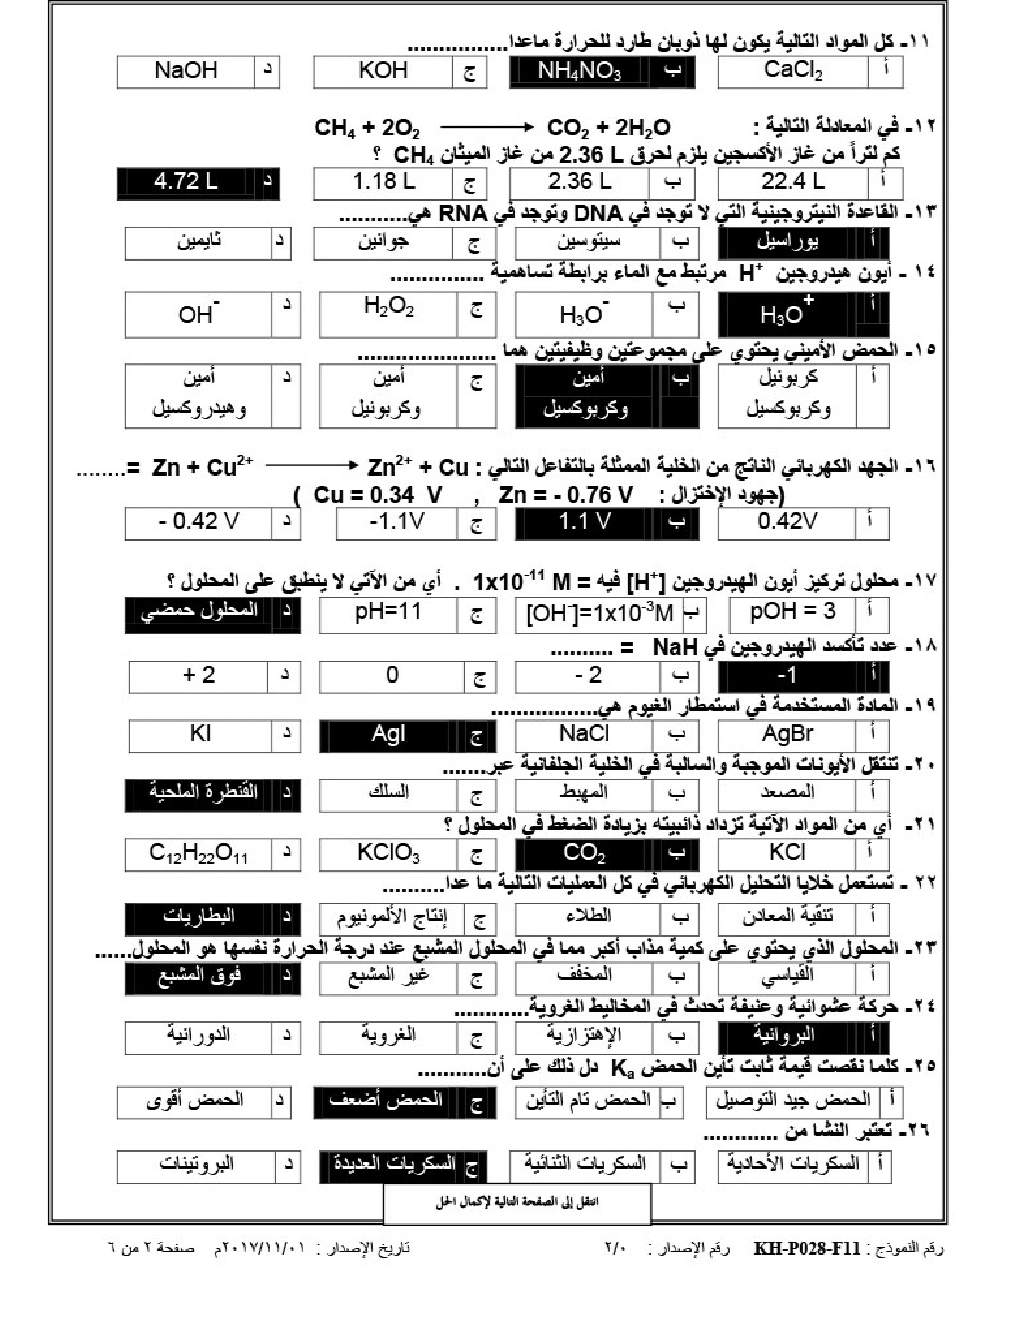 ١١- كل المواد التالية يكون لها ذوبان طارد للحرارة ماعدا................
أ CaCl₂ ب NH₄NO₃ ج KOH د NaOH
١٢- في المعادلة التالية : CH₄ + 2O₂ ⟶ CO₂ + 2H₂O
كم لتراً من غاز الأكسجين يلزم لحرق 2.36 L من غاز الميثان CH₄ ؟
أ 22.4 L ب 2.36 L ج 1.18 L د 4.72 L
١٣- القاعدة النيتروجينية التي لا توجد في DNA وتوجد في RNA هي...........
أ يوراسيل ب سيتوسين ج جوانين د ثايمين
١٤ - أيون هيدروجين H⁺ مرتبط مع الماء برابطة تساهمية ...............
أ H₃O⁺ ب H₃O⁻ ج H₂O₂ د OH⁻
١٥- الحمض الأميني يحتوي على مجموعتين وظيفيتين هما ......................
أ كربونيل ب أمين ج أمين د أمين
وكربوكسيل وكربوكسيل وكربونيل وهيدروكسيل
١٦- الجهد الكهربائي الناتج من الخلية الممثلة بالتفاعل التالي : Zn + Cu²⁺ ⟶ Zn²⁺ + Cu =........
(جهود الإختزال : Cu = 0.34 V , Zn = - 0.76 V )
أ 0.42V ب 1.1 V ج -1.1V د - 0.42 V
١٧- محلول تركيز أيون الهيدروجين [H⁺] فيه = 1x10⁻¹¹ M . أي من الآتي لا ينطبق على المحلول ؟
أ pOH = 3 ب [OH⁻]=1x10⁻³M ج pH=11 د المحلول حمضي
١٨- عدد تأكسد الهيدروجين في NaH = ..........
أ -1 ب - 2 ج 0 د + 2
١٩- المادة المستخدمة في استمطار الغيوم هي.................
أ AgBr ب NaCl ج AgI د KI
٢٠- تنتقل الأيونات الموجبة والسالبة في الخلية الجلفانية عبر.......
أ المصعد ب المهبط ج السلك د القنطرة الملحية
٢١- أي من المواد الآتية تزداد ذائبيته بزيادة الضغط في المحلول ؟
أ KCl ب CO₂ ج KClO₃ د C₁₂H₂₂O₁₁
٢٢ - تستعمل خلايا التحليل الكهربائي في كل العمليات التالية ما عدا..........
أ تنقية المعادن ب الطلاء ج إنتاج الألمونيوم د البطاريات
٢٣- المحلول الذي يحتوي على كمية مذاب أكبر مما في المحلول المشبع عند درجة الحرارة نفسها هو المحلول......
أ القياسي ب المخفف ج غير المشبع د فوق المشبع
٢٤- حركة عشوائية وعنيفة تحدث في المخاليط الغروية............
أ البروانية ب الإهتزازية ج الغروية د الدورانية
٢٥- كلما نقصت قيمة ثابت تأين الحمض Kₐ دل ذلك على أن...........
أ الحمض جيد التوصيل ب الحمض تام التأين ج الحمض أضعف د الحمض أقوى
٢٦- تعتبر النشا من ............
أ السكريات الأحادية ب السكريات الثنائية ج السكريات العديدة د البروتينات
انتقل إلى الصفحة التالية لإكمال الحل
رقم النموذج : KH-P028-F11 رقم الإصدار : ٢/٠ تاريخ الإصدار : ٢٠١٧/١١/٠١م صفحة ٢ من ٦